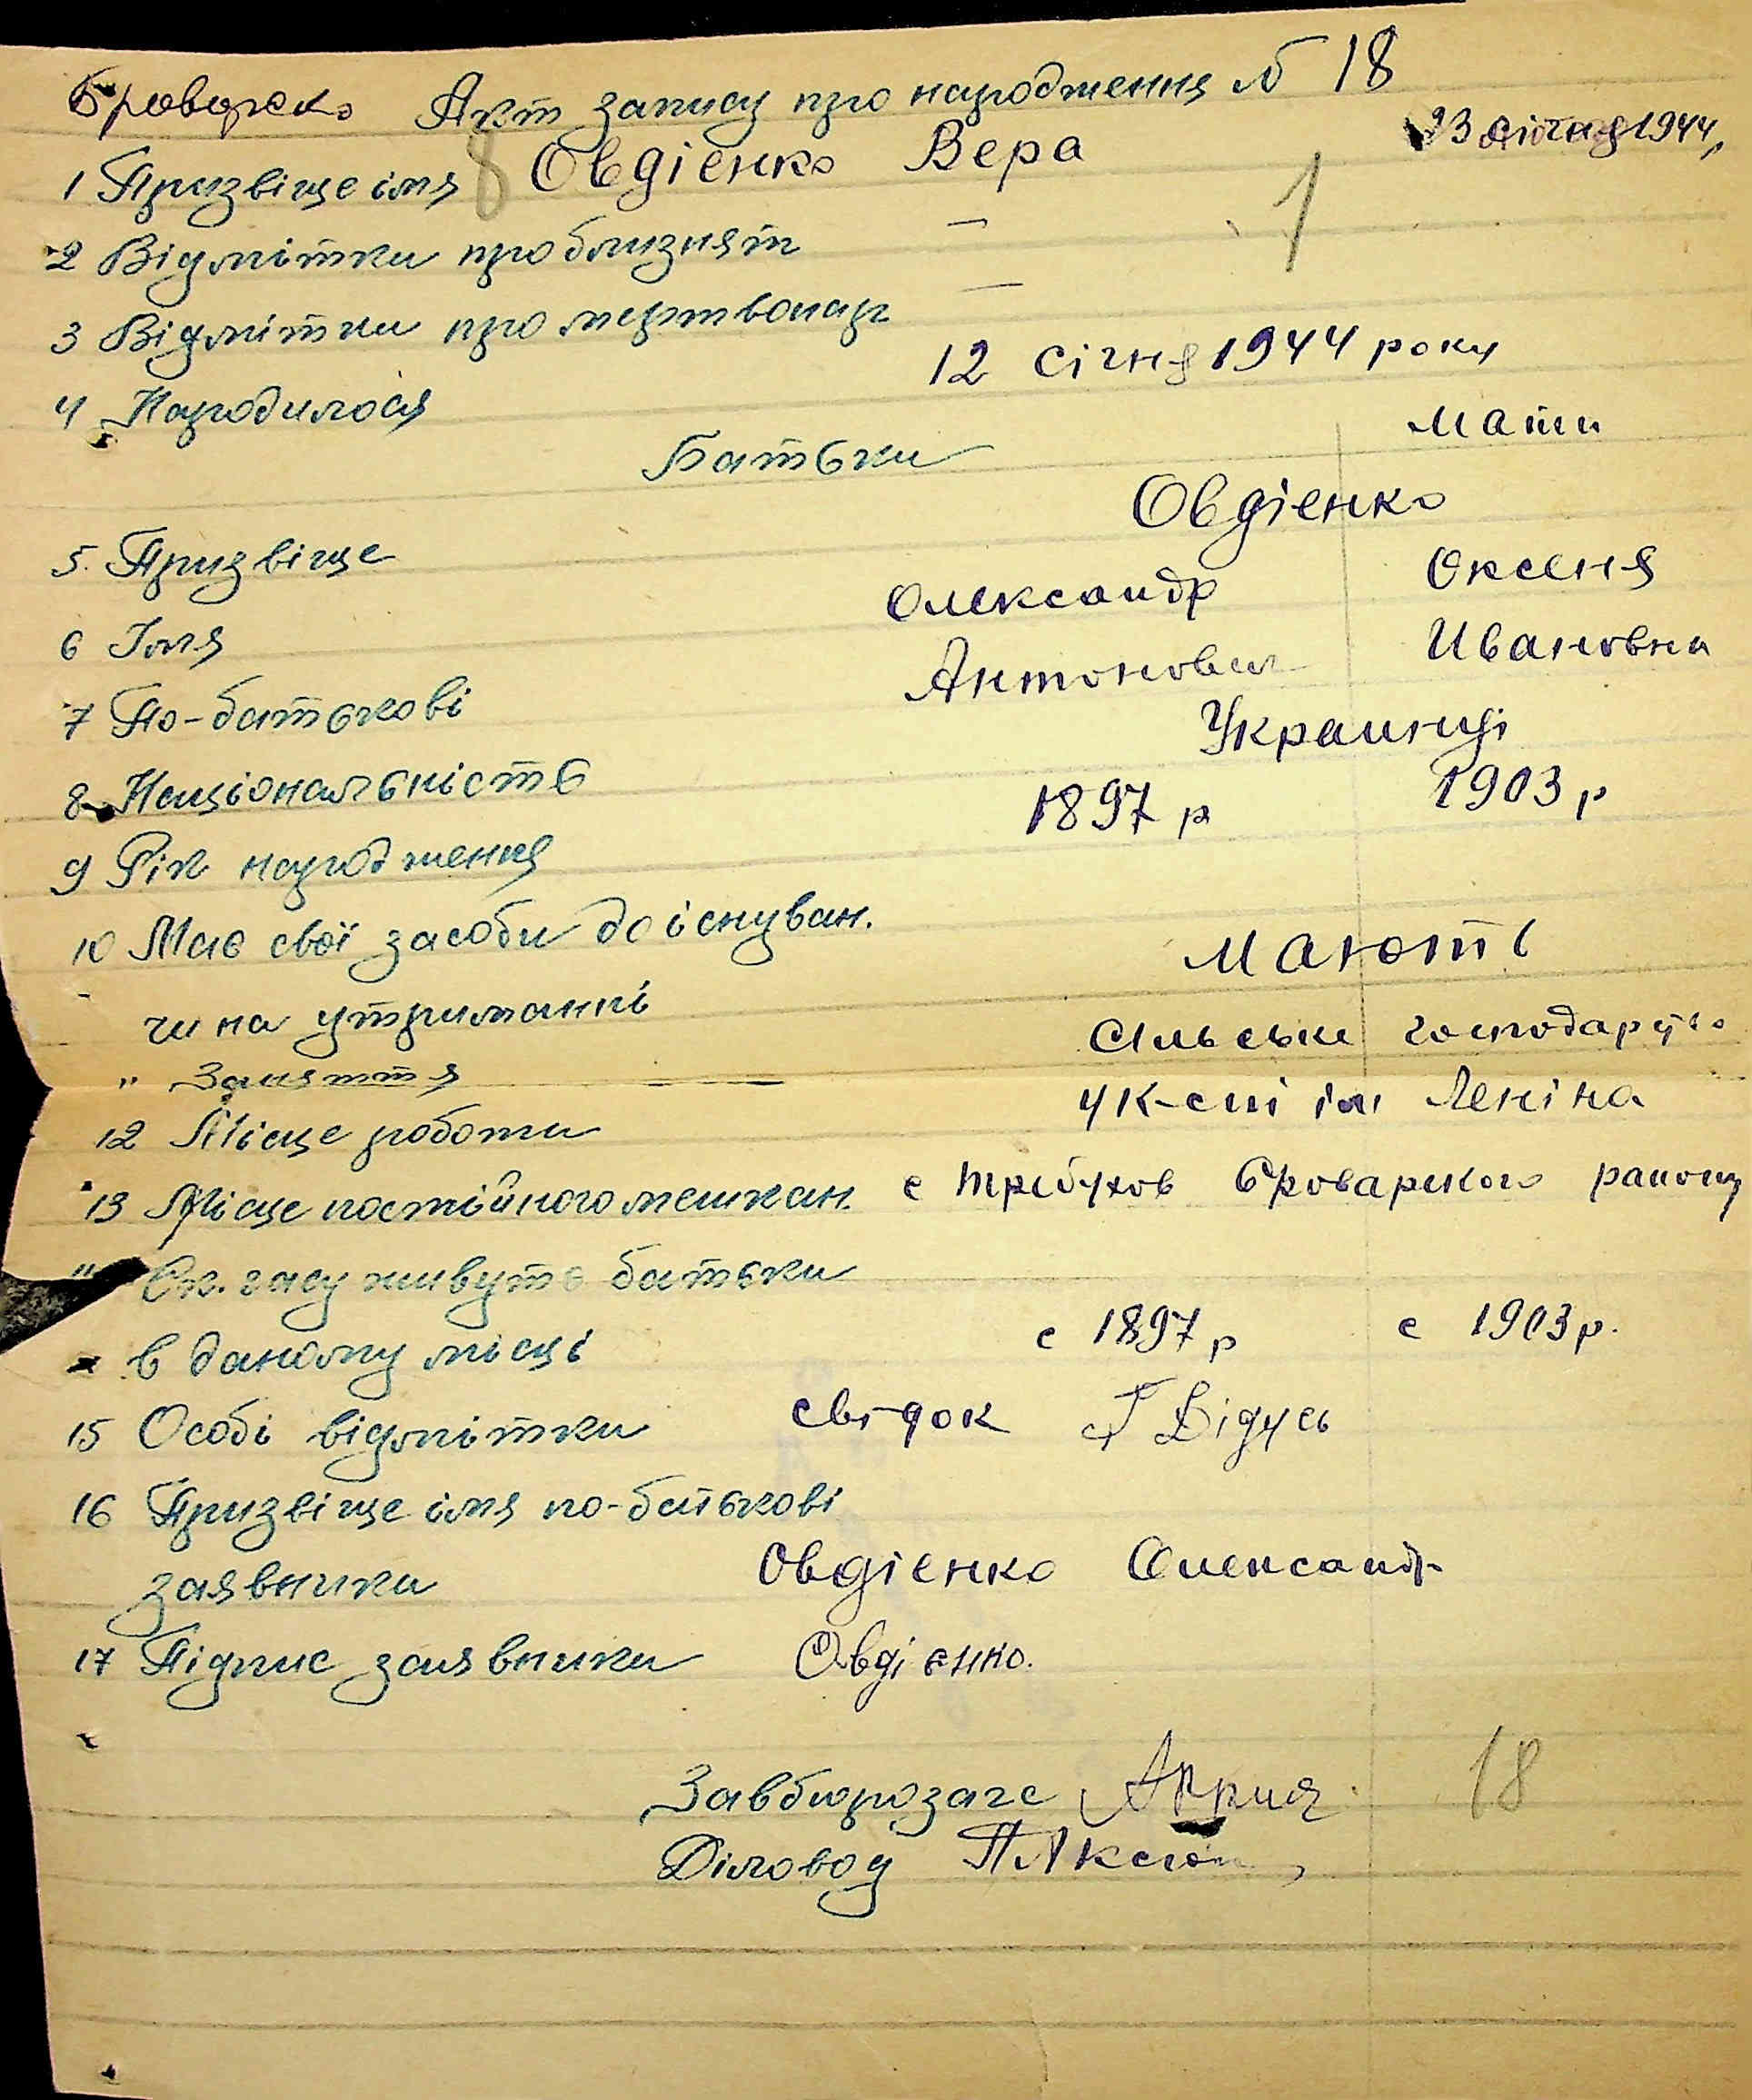 Броворско Акт запису про народження № 18
23 січня 1944 р
1 Призвіще імя 8 Овдіенко Вера
2 Відмітки про близнят — 1
3 Відмітки про мертвонар —
4 Народилося 12 січня 1944 року
Батьки Мати
5. Призвіще Овдіенко
6 Імя Олександр Оксеня
7 По-батькові Антонович Ивановна
8 Національність Украинці
9 Рік народження 1897 р 1903 р
10 Має свої засоби до існуван.
чи на утриманні Мають
" Заняття Сільське господарство
12 Місце роботи ік-спі ім Леніна
13 Місце постійного мешкан. с Требухов Броварского району
" Ск. часу живуть батьки
в даному місці с 1897 р с 1903 р.
15 Особі відмітки свідок Г Відусь
16 Призвіще імя по-батькові
заявника Овдіенко Олександр
17 Підпис заявника Овдієнко.
Завбюрозагс 18
Діловод